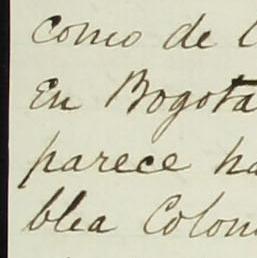 como de
En Bogota
parece ha
blea Colom